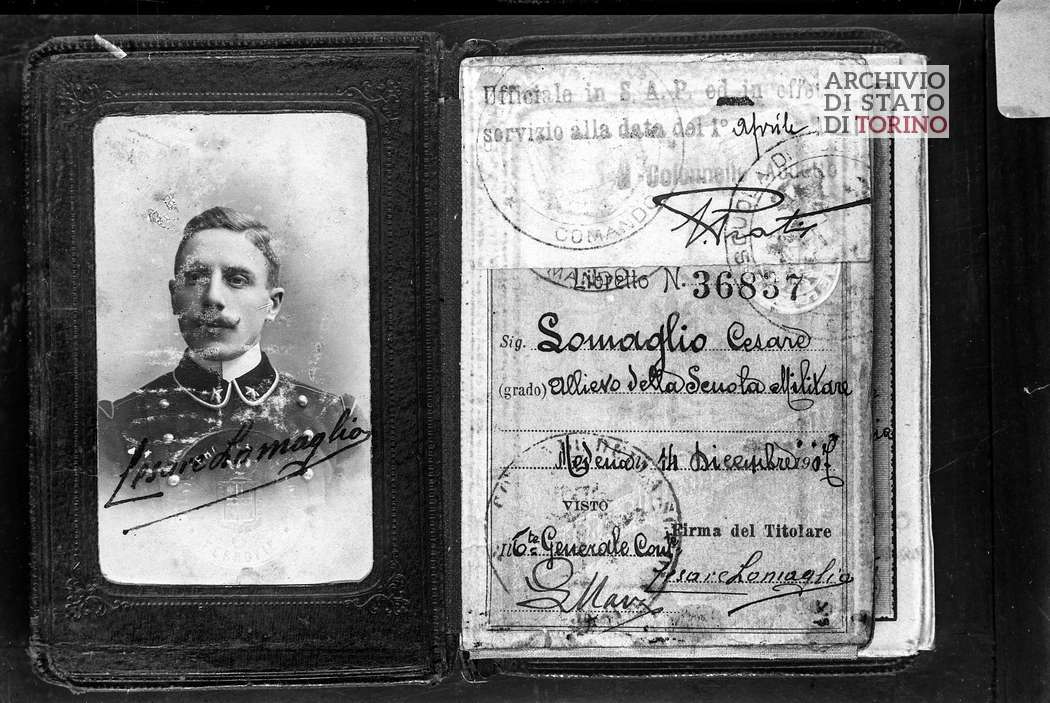 ARCHIVIO
DI STATO
DI TORINO
Cesare Lomaglio
Ufficiale in S.A.P. ed in
servizio alla data del 1° Aprile
Colonnello
COMANDO
Libretto N. 36837
Sig. Lomaglio Cesare
(grado) Allievo della Scuola Militare
Modena, 14 Dicembre 190
VISTO
Firma del Titolare
Il Te Generale Com
Cesare Lomaglio